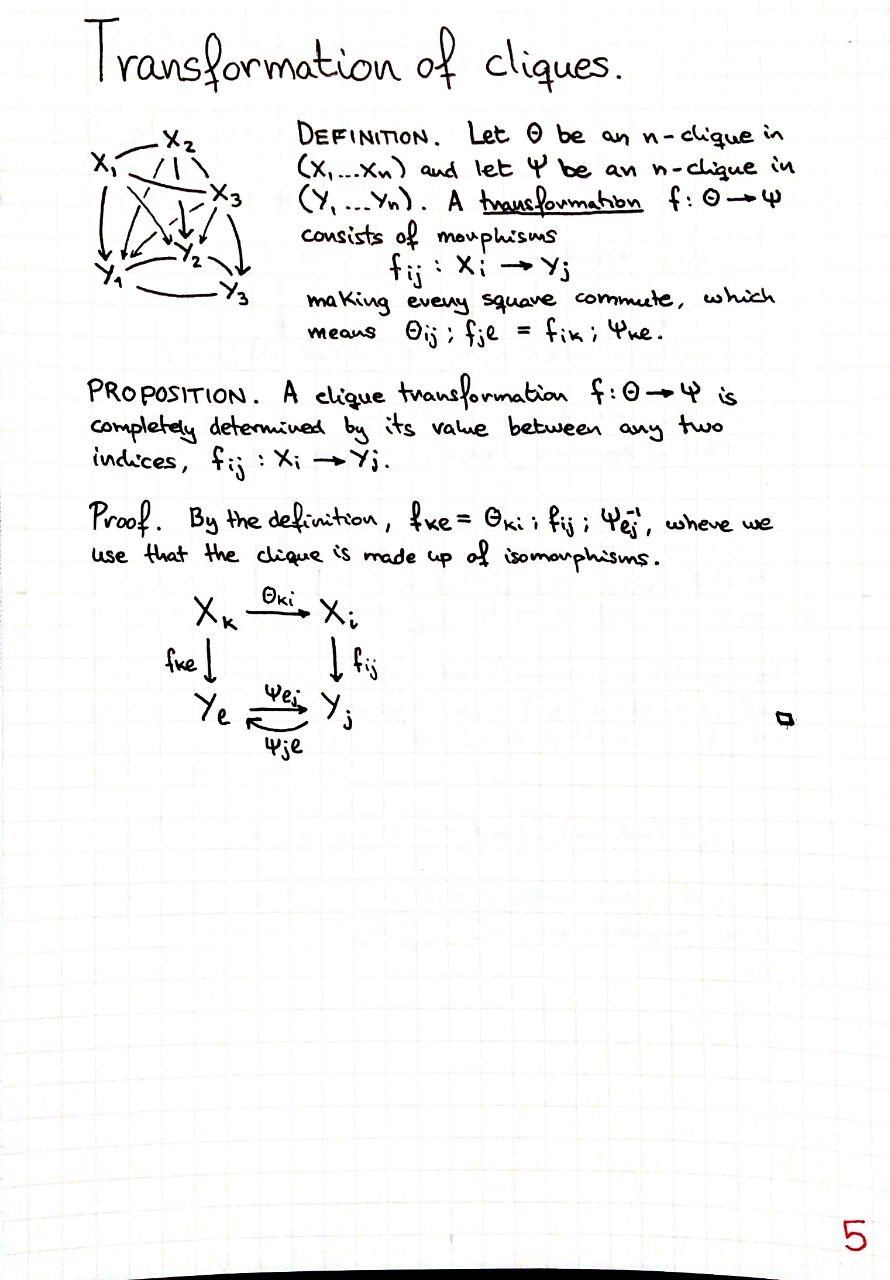 Transformation of cliques.
X₁ X₂ X₃
Y₁ Y₂ Y₃
DEFINITION. Let Θ be an n-clique in
(X₁...Xₙ) and let Ψ be an n-clique in
(Y₁...Yₙ). A transformation f: Θ → Ψ
consists of morphisms
fᵢⱼ : Xᵢ → Yⱼ
making every square commute, which
means Θᵢⱼ ; fⱼₗ = fᵢₖ ; Ψₖₗ.
PROPOSITION. A clique transformation f: Θ → Ψ is
completely determined by its value between any two
indices, fᵢⱼ : Xᵢ → Yⱼ.
Proof. By the definition, fₖₗ = Θₖᵢ ; fᵢⱼ ; Ψₗⱼ⁻¹, where we
use that the clique is made up of isomorphisms.
Θₖᵢ
Xₖ → Xᵢ
fₖₗ ↓ ↓ fᵢⱼ
Ψₗⱼ
Yₗ ⇄ Yⱼ
Ψⱼₗ
□
5